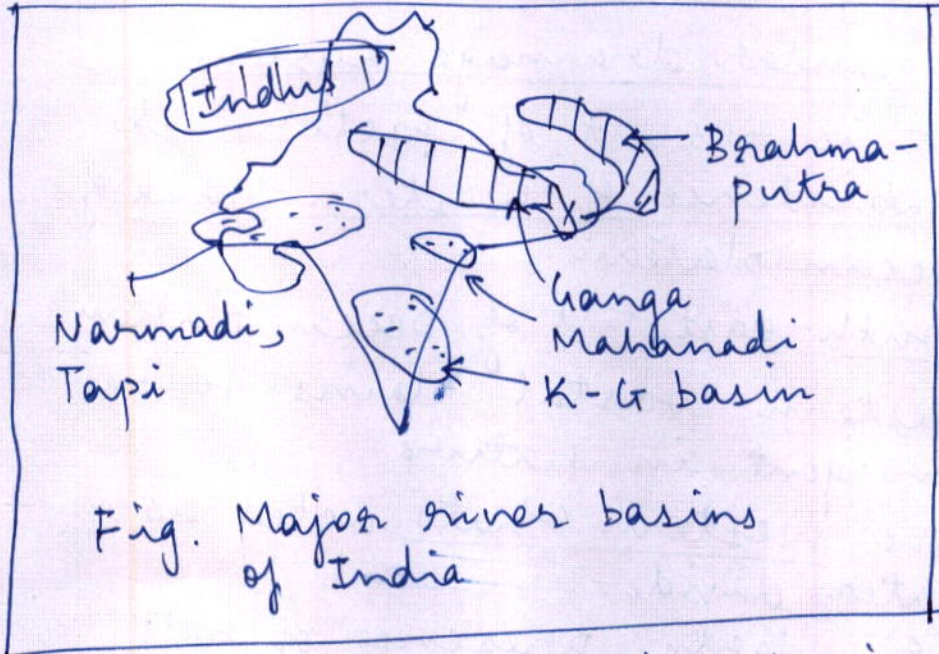 Indus
Brahma-
putra
Ganga
Mahanadi
K-G basin
Narmadi,
Tapi
Fig. Major river basins
of India